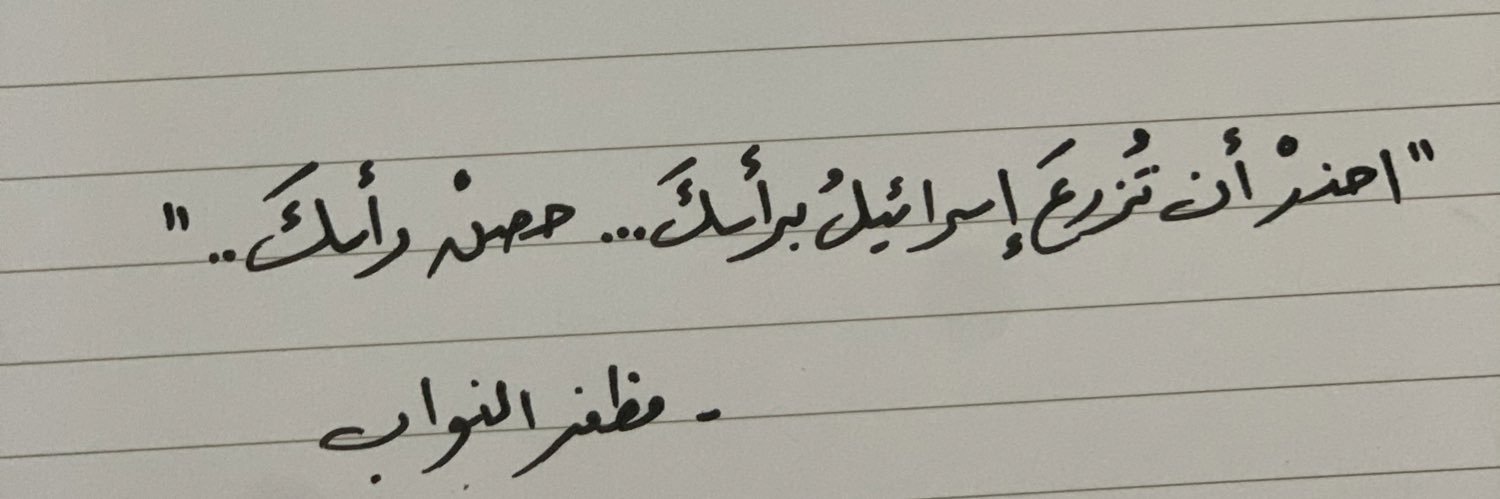 "احذرْ أن تُزرعَ إسرائيلُ برأسكَ... حصنْ رأسكَ.."
- مظفر النواب